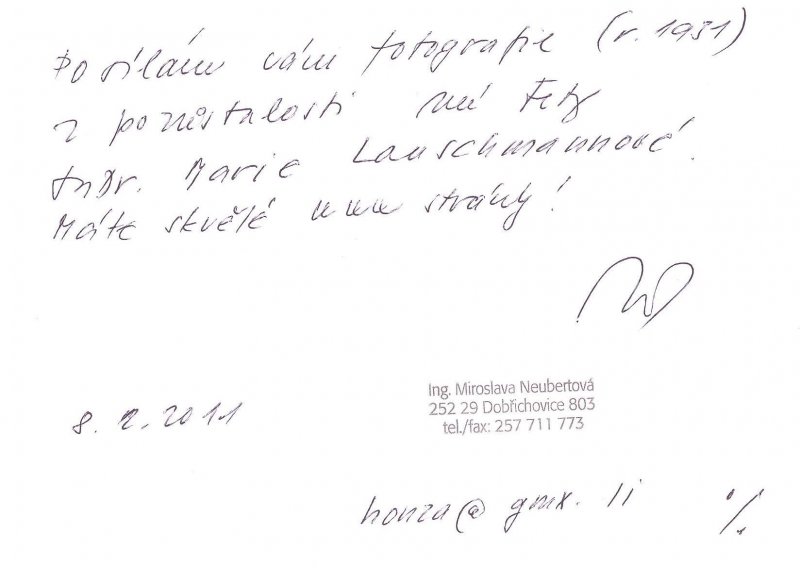 Posílám vám fotografie (r. 1931)
z pozůstalosti mé tety
JuDr. Marie Lauschmannové.
Máte skvělé www stránky!
8. 2. 2011
Ing. Miroslava Neubertová
252 29 Dobřichovice 803
tel./fax: 257 711 773
honza@gmx.li
·/.